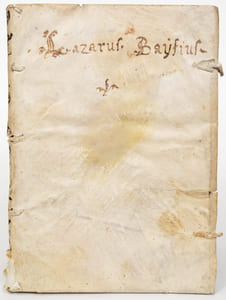 Lazarus. Baÿfius.